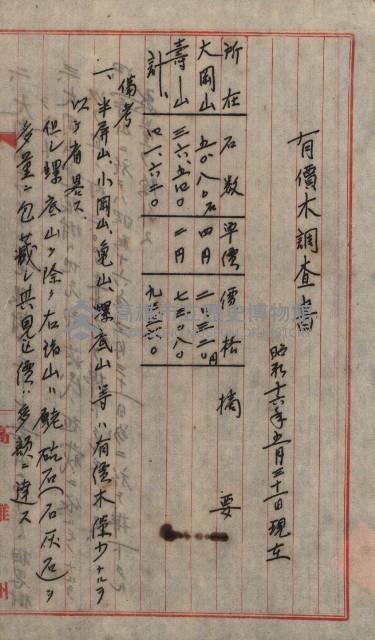 有價木調査書
昭和十六年五月三十一日現在
所在 石数 單價 價格 摘要
大岡山 五〇八〇石 四円 二〇三二〇円
壽山 三六、五四〇 二円 七三〇八〇
計 四一、六二〇 九三四〇〇
備考
一、半屏山、小岡山、龜山、螺底山等ハ有價木僅少ナルヲ
以テ省畧ス
但シ螺底山ヲ除ク右諸山ハ石(石灰石)ヲ
多量ニ包藏シ其見込價ハ多額ニ達ス
高雄州
高雄市立歷史博物館